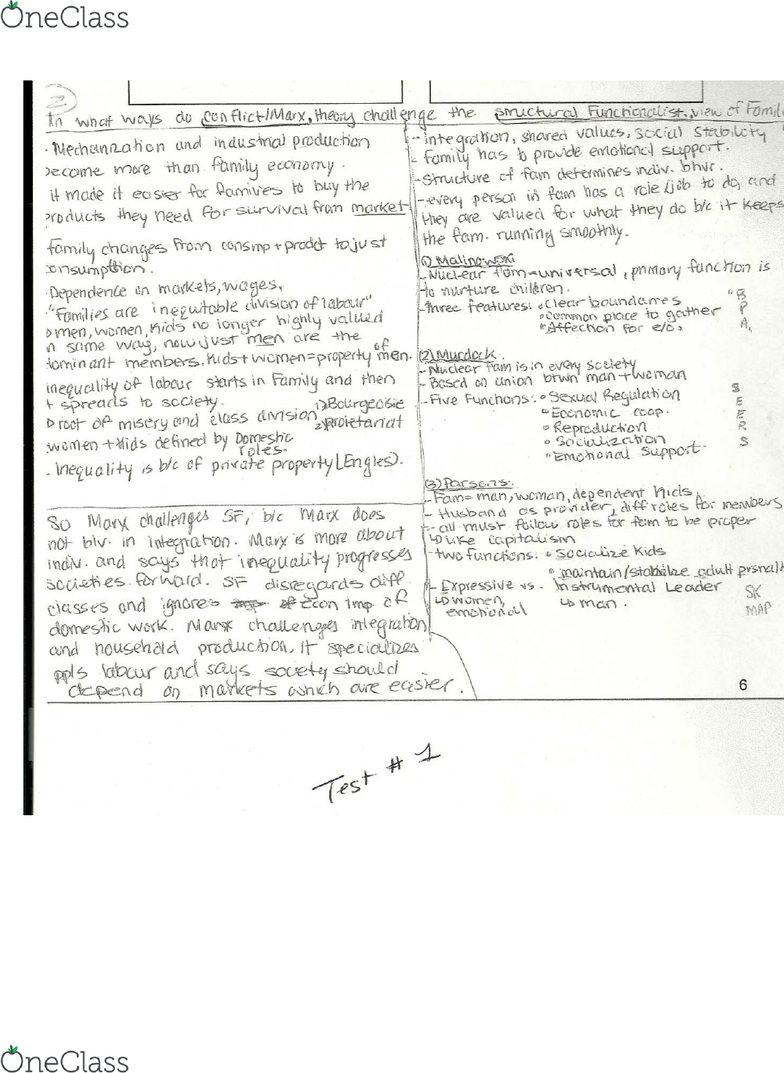 OneClass
2
In what ways do conflict/Marx, theory challenge the structural Functionalist view of Famil
· Mechanization and industrial production
become more than family economy.
it made it easier for families to buy the
products they need for survival from market
family changes from consmp + prodct to just
consumption.
· Dependence on markets, wages,
"Families are inequitable division of labour"
men, women, kids no longer highly valued
in same way, now just men are the
dominant members. Kids + women = property of men.
inequality of labour starts in Family and then
+ spreads to society. 1) Bourgeoisie
root of misery and class division 2) Proletariat
women + kids defined by Domestic
roles.
· Inequality is b/c of private property (Engles).
So Marx challenges SF, b/c Marx does
not blv. in integration. Marx is more about
indiv. and says that inequality progresses
societies forward. SF disregards diff
classes and ignores econ imp of
domestic work. Marx challenges integration
and household production, it specializes
ppls labour and says society should
depend on markets which are easier.
- integration, shared values, social stability
- family has to provide emotional support.
- Structure of fam determines indiv. bhvr.
- every person in fam has a role/job to do, and
they are valued for what they do b/c it keeps
the fam. running smoothly.
(1) Malinowski
- Nuclear fam = universal, primary function is
to nurture children.
- three features: • Clear boundaries B
• common place to gather P
• Affection for e/o. A
(2) Murdock
- Nuclear fam is in every society
- Based on union btwn man + woman
- Five Functions: • Sexual Regulation S
• Economic coop. E
• Reproduction E
• Socialization R
• Emotional support. S
(3) Parsons:
- Fam = man, woman, dependent kids,
- Husband as provider, diff roles for members
- all must follow roles for fam to be proper
↳ like capitalism
- two functions: • Socialize kids
• maintain/stabilize adult prsnalit
- Expressive vs. Instrumental Leader SK
↳ women, ↳ man. MAP
emotional
6
Test # 1
OneClass